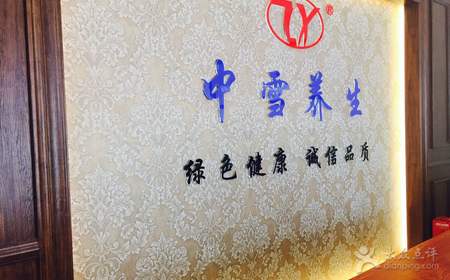 ZY®
中雪养生
绿色健康 诚信品质
大众点评
dianping.com